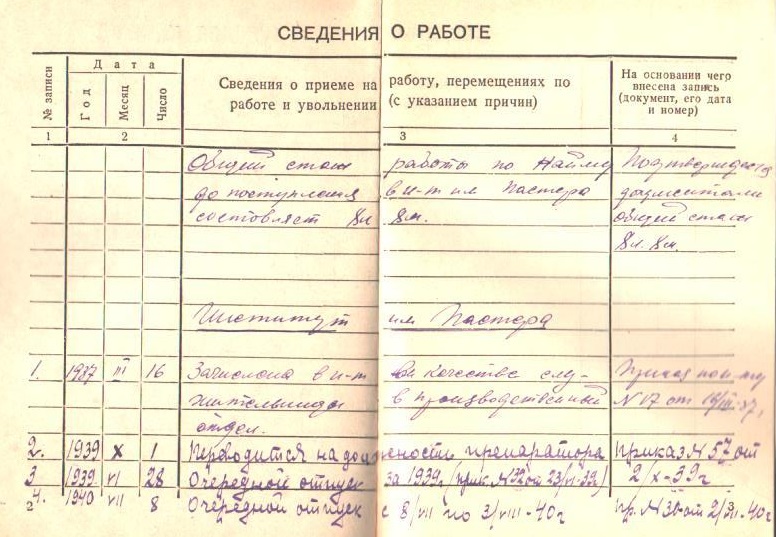 СВЕДЕНИЯ О РАБОТЕ
№ записи
Дата
Год
Месяц
Число
Сведения о приеме на работу, перемещениях по
работе и увольнении (с указанием причин)
На основании чего
внесена запись
(документ, его дата
и номер)
1 2 3 4
Общий стаж работы по найму Подтверждается
до поступления в и-т им Пастера документами
составляет 8л 8м. общий стаж
8л. 8м.
Институт им Пастера
1. 1937 III 16 Зачислена в и-т в качестве слу- Приказ по и-ту
жительницы в производственный N 17 от
отдел.
2. 1939 X 1 Переводится на должности препаратора Приказ N 57 от
3 1939 VI 28 Очередной отпуск за 1939г (прик. N 32 от 23/VI-39г) 2/X-39г
4. 1940 VII 8 Очередной отпуск с 8/VII по 3/VIII-40г Пр. N 30 от 2/VII-40г
2 3